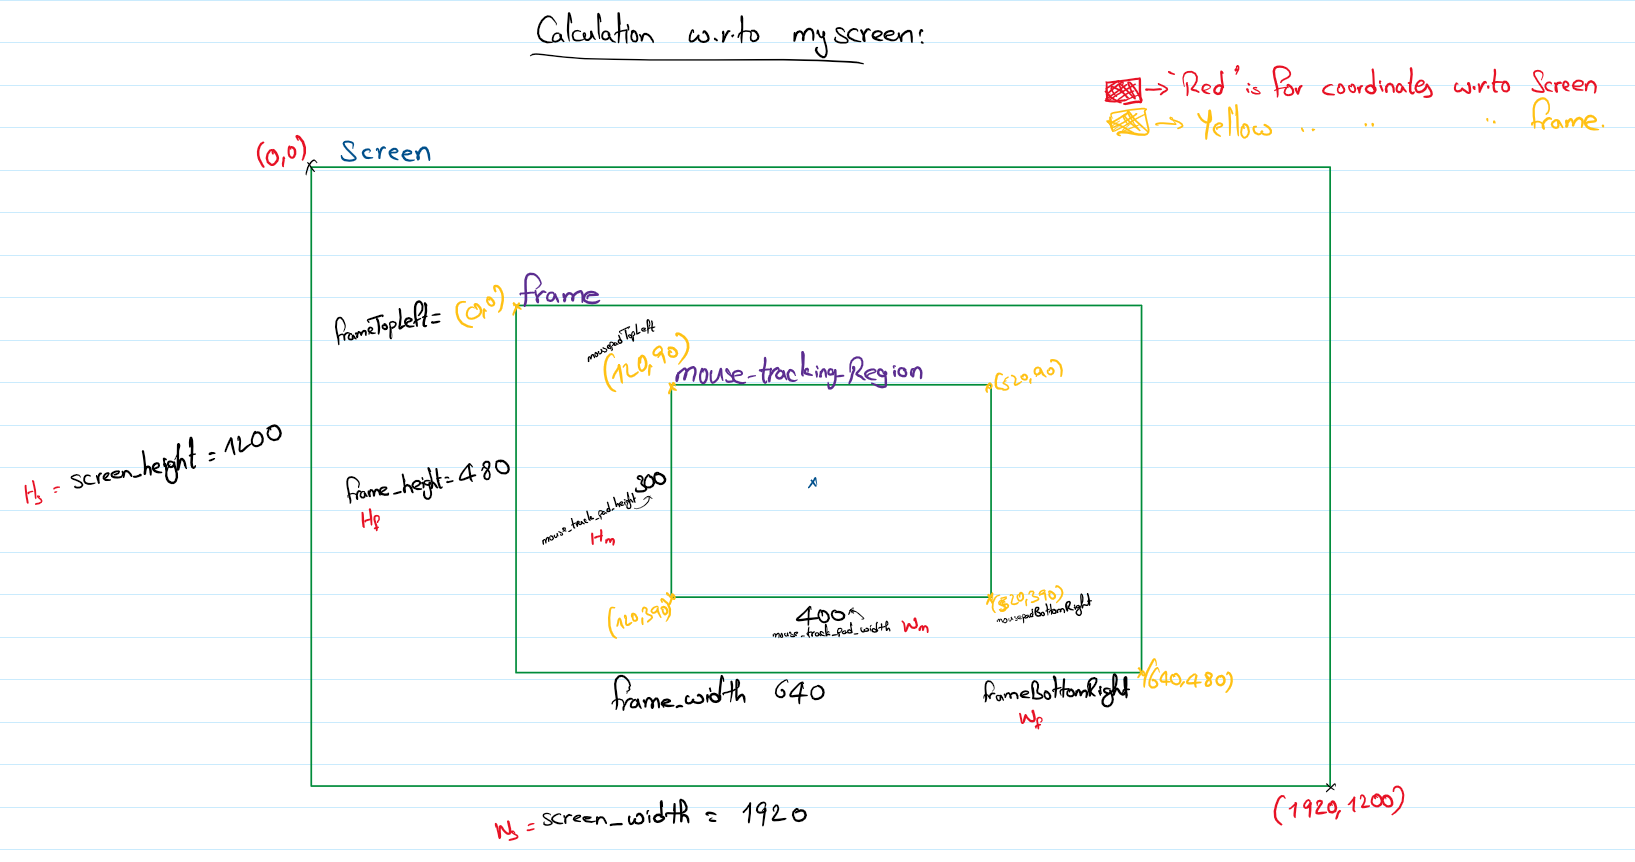 Calculation w.r.to my screen:
→ 'Red' is for coordinates w.r.to Screen
→ Yellow .. .. .. frame.
(0,0) Screen
frame
frameTopLeft = (0,0)
mousepadTopLeft
(120,90)
mouse-tracking-Region
(520,90)
Hs = screen_height = 1200
frame_height = 480
Hf
300
mouse_track_pad_height
Hm
(120,390)
(520,390)
mousepadBottomRight
400
mouse_track_pad_width Wm
(640,480)
frame_width 640
frameBottomRight
Wf
(1920,1200)
Ws = screen_width = 1920